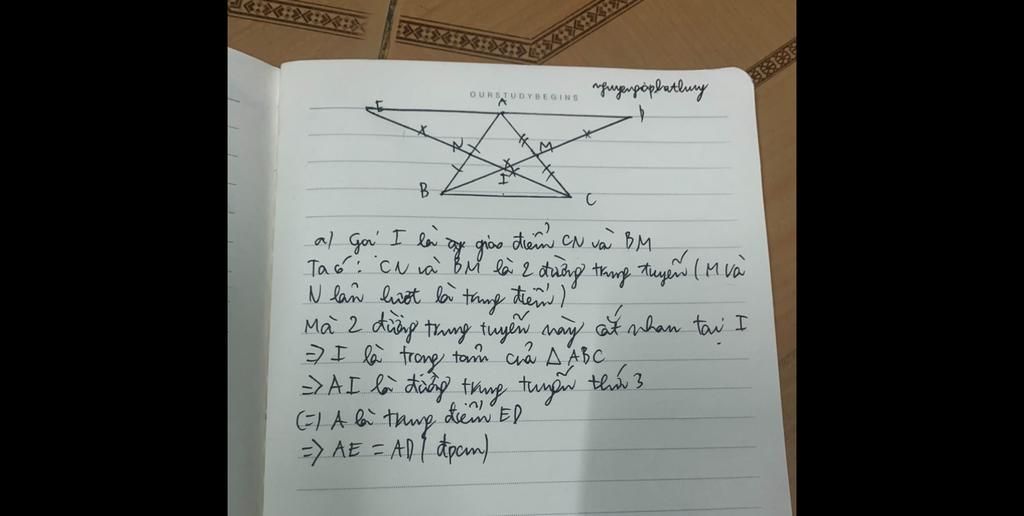 nguyengiaphathuy
OURSTUDYBEGINS
E A D
N M
I
B C
a) Gọi I là giao điểm CN và BM
Ta có: CN và BM là 2 đường trung tuyến (M và
N lần lượt là trung điểm)
Mà 2 đường trung tuyến này cắt nhau tại I
=> I là trọng tâm của △ ABC
=> AI là đường trung tuyến thứ 3
(=) A là trung điểm ED
=> AE = AD (đpcm)